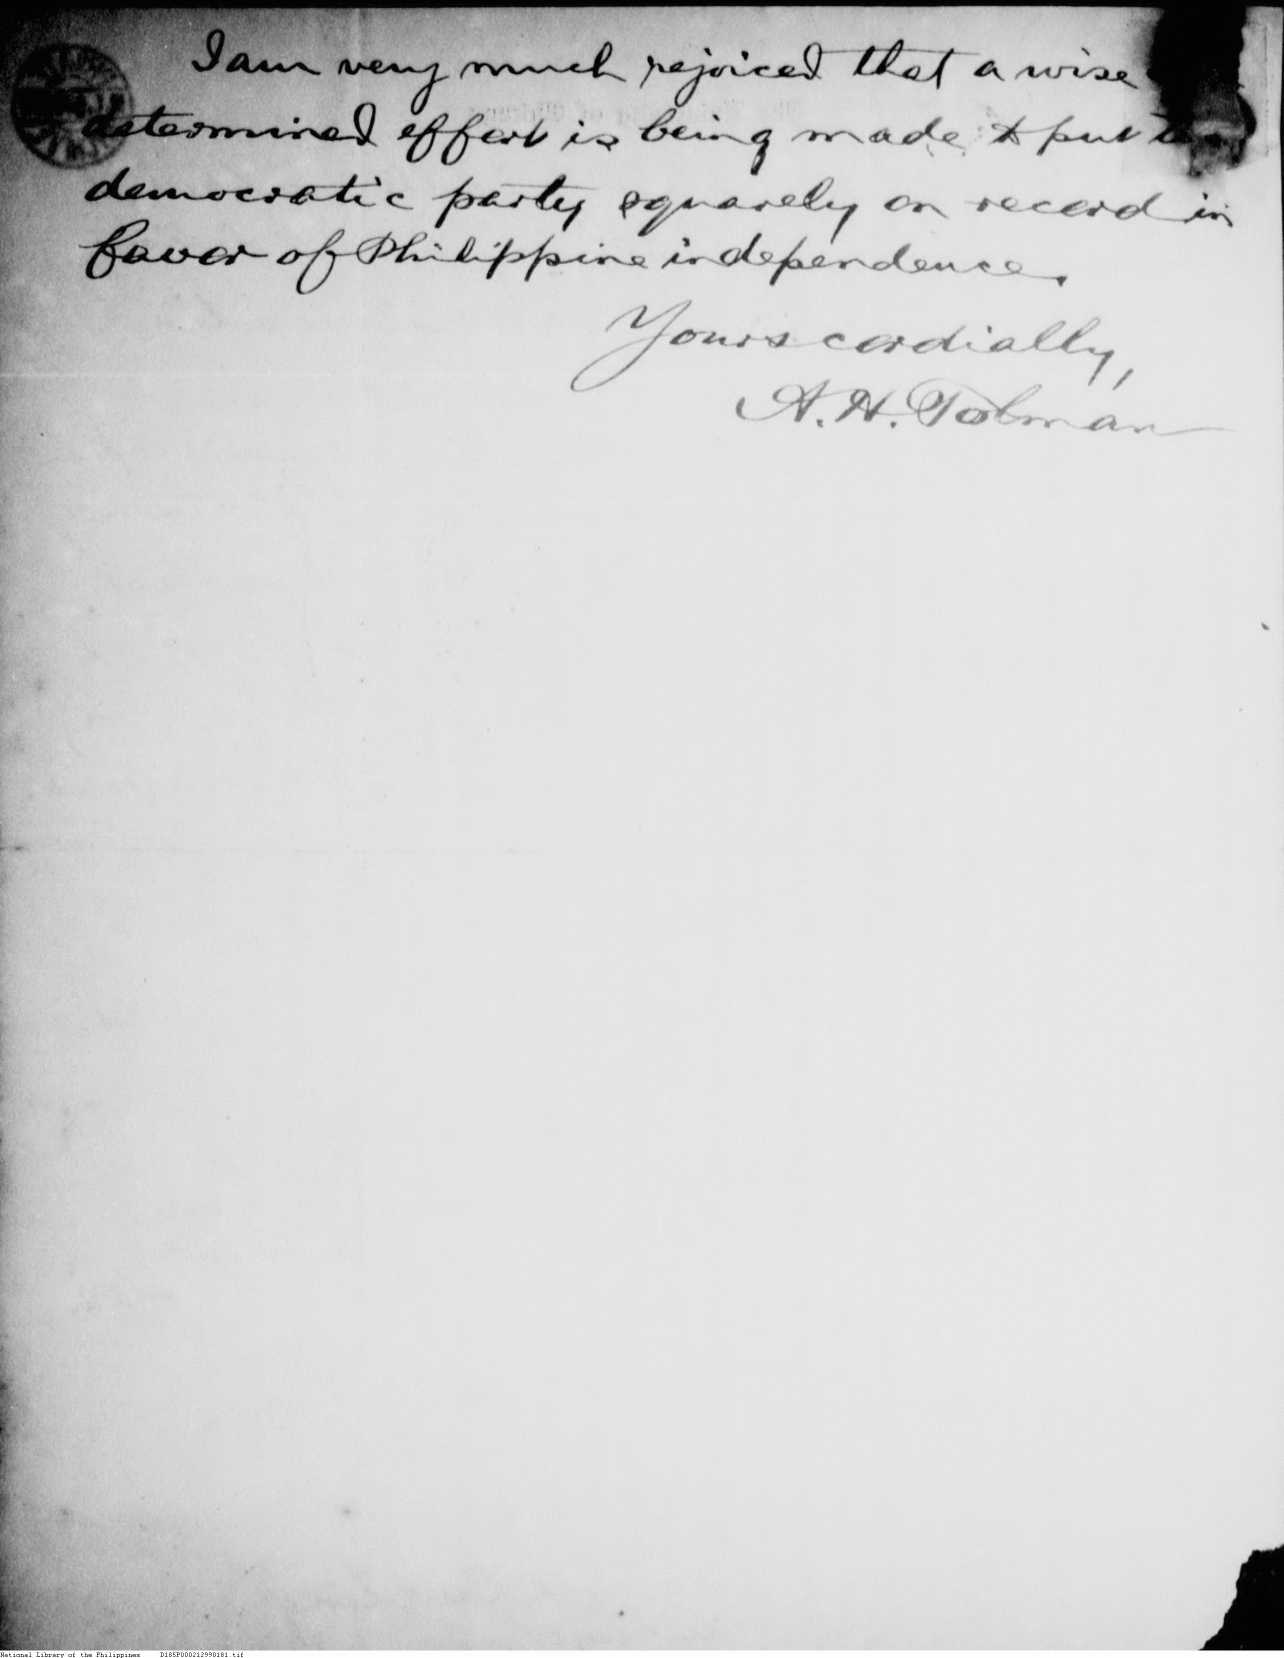 I am very much rejoiced that a wise
determined effort is being made to put
democratic party squarely on record in
favor of Philippine independence.
Yours cordially,
A. H. Tolman
National Library of the Philippines D185P000212990181.tif